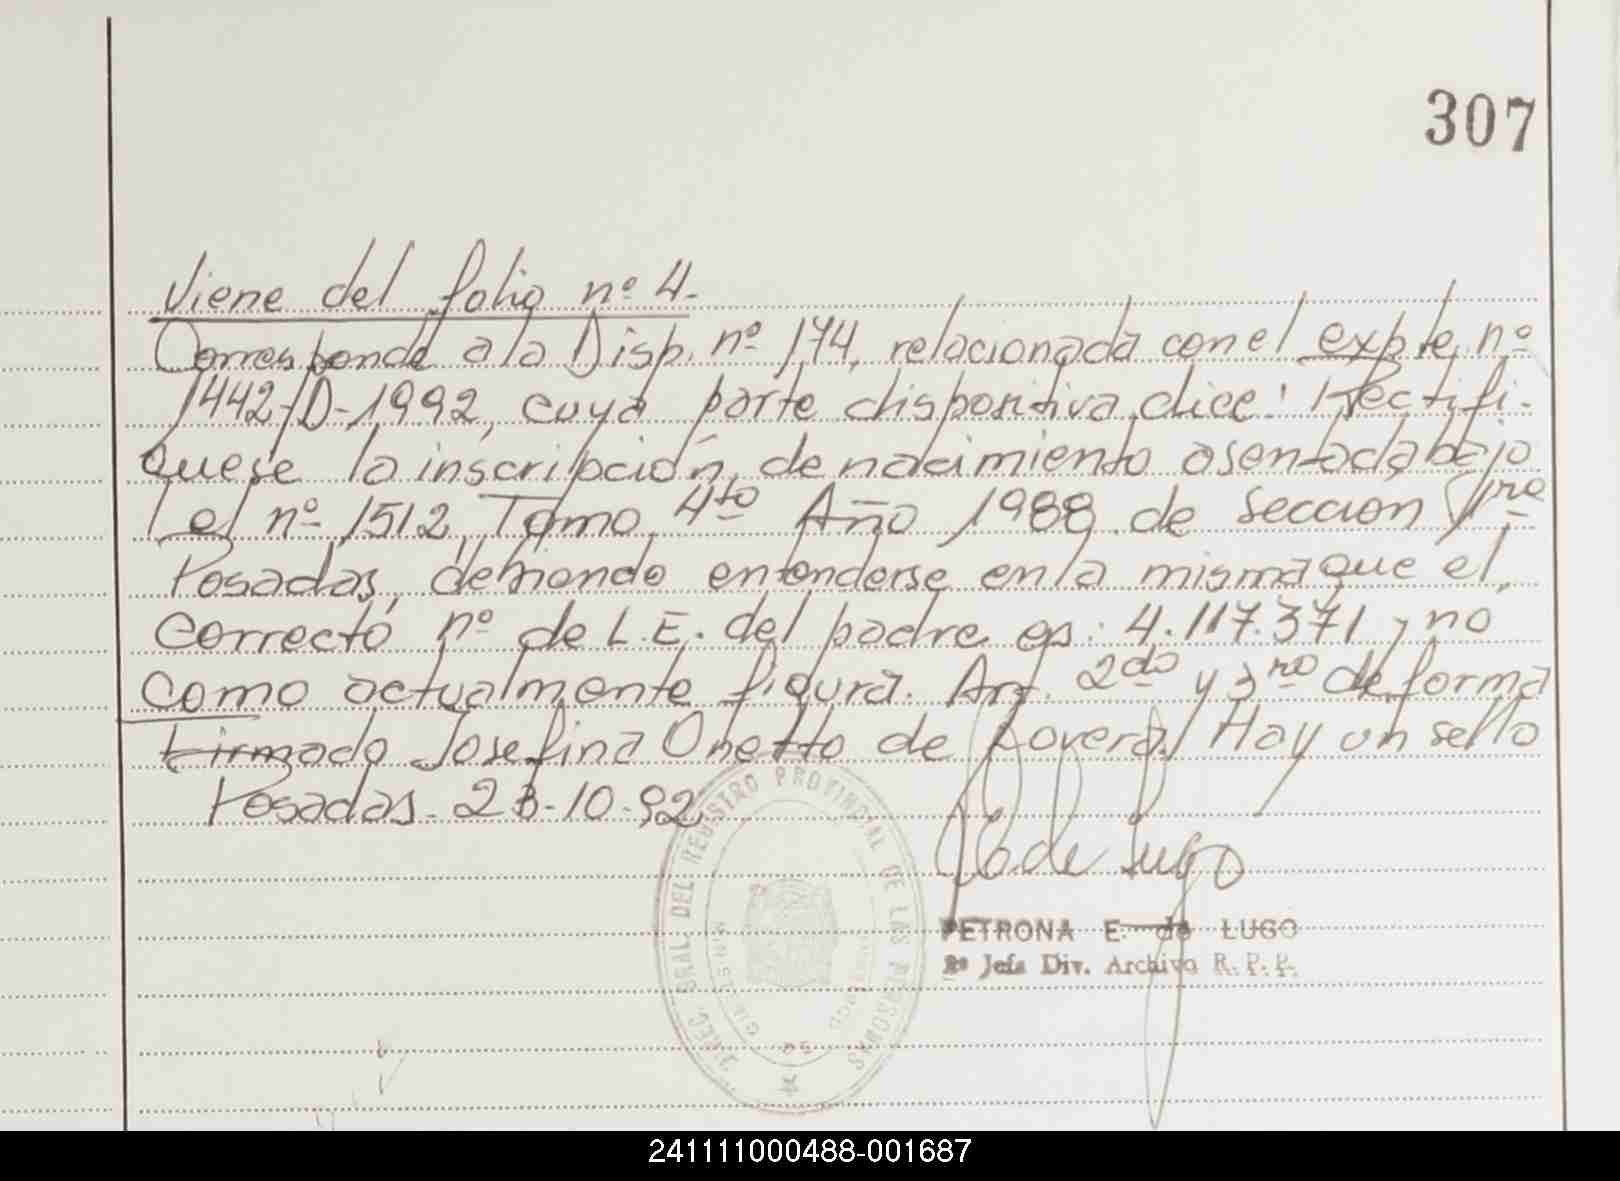 307
Viene del folio nº 4.
Corresponde a la Disp. nº 174, relacionada con el expte nº
1442-D-1992, cuya parte dispositiva dice: Rectifi-
quese la inscripción de nacimiento asentada bajo
el nº 1512, Tomo 4to Año 1988 de Seccion 1ra
Posadas, debiendo entenderse en la misma que el
correcto nº de L.E. del padre es: 4.117.371 y no
como actualmente figura. Art. 2do y 3ro de forma
Firmado Josefina Onetto de Rovera/ Hay un sello
Posadas. 23-10-92
de Lugo
PETRONA E. de LUGO
2ª Jefa Div. Archivo R. P. P.
DIREC. GRAL. DEL REGISTRO PROVINCIAL DE LAS PERSONAS
241111000488-001687